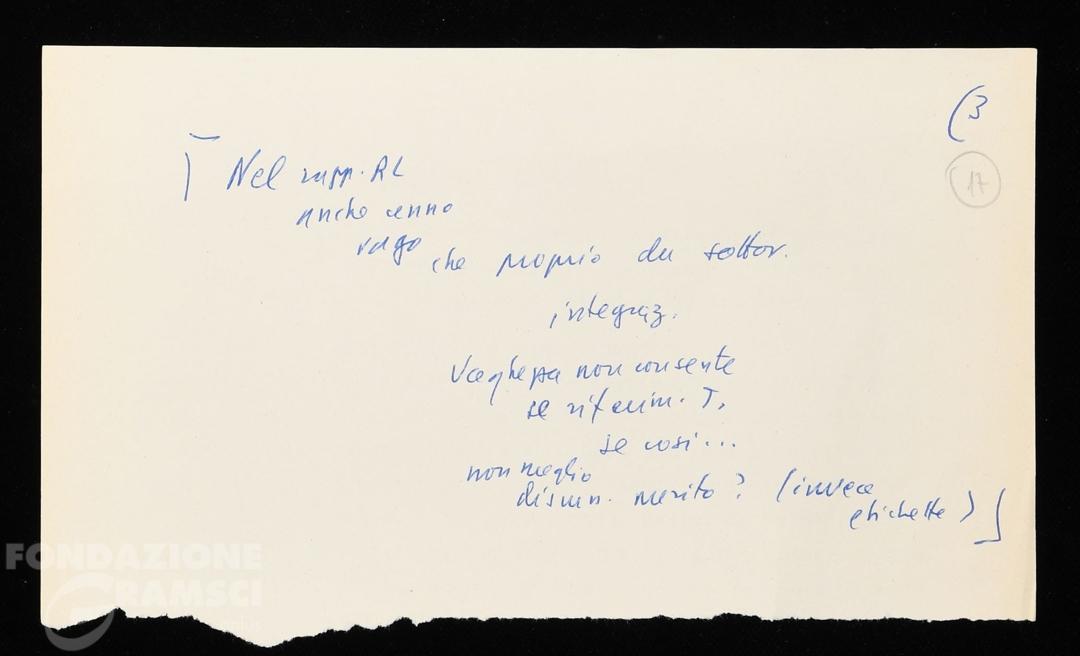 (3
17
Nel rapp. RL
anche cenno
vago che proprio da sottov.
integraz.
Vaghezza non consente
se riferim. T.
se così...
non meglio
discus. merito? (invece
etichette)]
FONDAZIONE
GRAMSCI
onlus